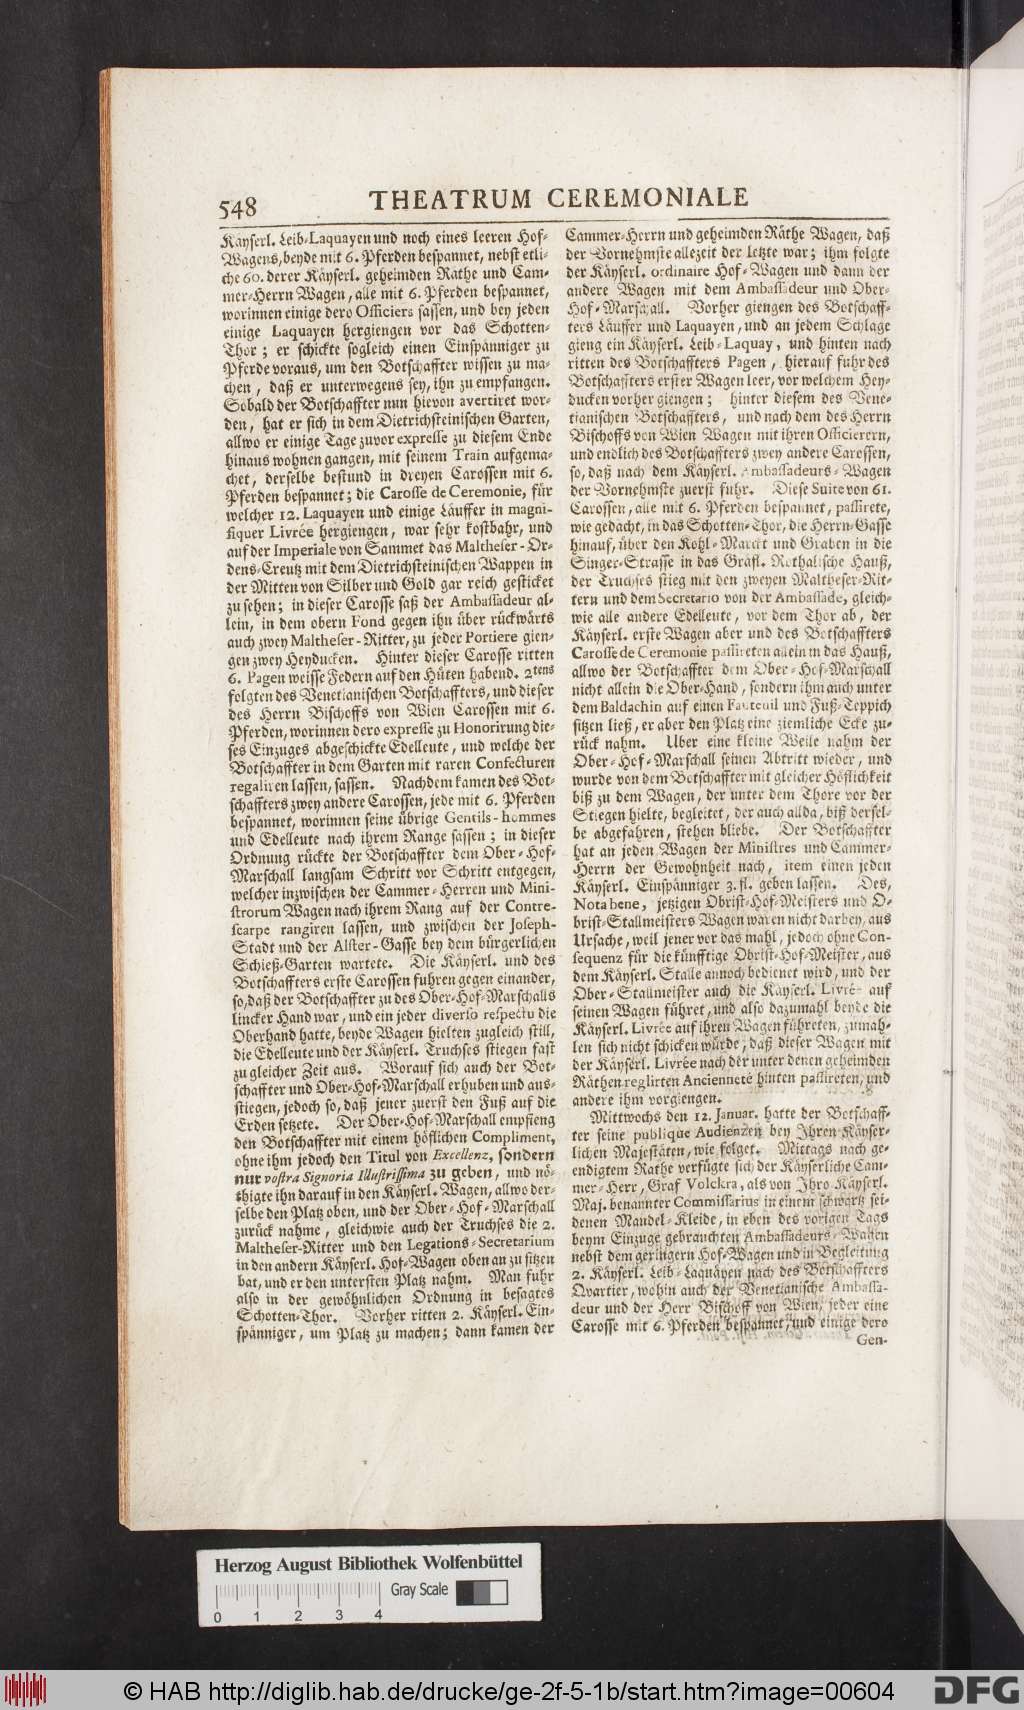 548
THEATRUM CEREMONIALE
Käyserl. Leib-Laquayen und noch eines leeren Hof-
Wagens, beyde mit 6. Pferden bespannet, nebst etli-
che 60. derer Käyserl. geheimden Räthe und Cam-
mer-Herrn Wagen, alle mit 6. Pferden bespannet,
worinnen einige dero Officiers sassen, und bey jeden
einige Laquayen hergiengen vor das Schotten-
Thor; er schickte sogleich einen Einspänniger zu
Pferde voraus, um den Botschaffter wissen zu ma-
chen, daß er unterwegens sey, ihn zu empfangen.
Sobald der Botschaffter nun hievon avertiret wor-
den, hat er sich in dem Dietrichsteinischen Garten,
allwo er einige Tage zuvor expresse zu diesem Ende
hinaus wohnen gangen, mit seinem Train aufgema-
chet, derselbe bestund in dreyen Carossen mit 6.
Pferden bespannet; die Carosse de Ceremonie, für
welcher 12. Laquayen und einige Läuffer in magni-
fiquer Livrée hergiengen, war sehr kostbahr, und
auf der Imperiale von Sammet das Maltheser-Or-
dens-Creutz mit dem Dietrichsteinischen Wappen in
der Mitten von Silber und Gold gar reich gesticket
zu sehen; in dieser Carosse saß der Ambassadeur al-
lein, in dem obern Fond gegen ihn über rückwärts
auch zwey Maltheser-Ritter, zu jeder Portiere gien-
gen zwey Heyducken. Hinter dieser Carosse ritten
6. Pagen weisse Federn auf den Hüten habend. 2tens
folgten des Venetianischen Botschaffters, und dieser
des Herrn Bischoffs von Wien Carossen mit 6.
Pferden, worinnen dero expresse zu Honorirung die-
ses Einzuges abgeschickte Edelleute, und welche der
Botschaffter in dem Garten mit raren Confecturen
regaliren lassen, sassen. Nachdem kamen des Bot-
schaffters zwey andere Carossen, jede mit 6. Pferden
bespannet, worinnen seine übrige Gentils-hommes
und Edelleute nach ihrem Range sassen; in dieser
Ordnung rückte der Botschaffter dem Ober-Hof-
Marschall langsam Schritt vor Schritt entgegen,
welcher inzwischen der Cammer-Herren und Mini-
strorum Wagen nach ihrem Rang auf der Contre-
scarpe rangiren lassen, und zwischen der Joseph-
Stadt und der Alster-Gasse bey dem bürgerlichen
Schieß-Garten wartete. Die Käyserl. und des
Botschaffters erste Carossen fuhren gegen einander,
so, daß der Botschaffter zu des Ober-Hof-Marschalls
lincker Hand war, und ein jeder diverso respectu die
Oberhand hatte, beyde Wagen hielten zugleich still,
die Edelleute und der Käyserl. Truchses stiegen fast
zu gleicher Zeit aus. Worauf sich auch der Bot-
schaffter und Ober-Hof-Marschall erhuben und aus-
stiegen, jedoch so, daß jener zuerst den Fuß auf die
Erden setzete. Der Ober-Hof-Marschall empfieng
den Botschaffter mit einem höflichen Compliment,
ohne ihm jedoch den Titul von Excellenz, sondern
nur vostra Signoria Illustrissima zu geben, und nö-
thigte ihn darauf in den Käyserl. Wagen, allwo der-
selbe den Platz oben, und der Ober-Hof-Marschall
zurück nahme, gleichwie auch der Truchses die 2.
Maltheser-Ritter und den Legations-Secretarium
in den andern Käyserl. Hof-Wagen oben an zu sitzen
bat, und er den untersten Platz nahm. Man fuhr
also in der gewöhnlichen Ordnung in besagtes
Schotten-Thor. Vorher ritten 2. Käyserl. Ein-
spänniger, um Platz zu machen; dann kamen der
Cammer-Herrn und geheimden Räthe Wagen, daß
der Vornehmste allezeit der letzte war; ihm folgte
der Käyserl. ordinaire Hof-Wagen und dann der
andere Wagen mit dem Ambassadeur und Ober-
Hof-Marschall. Vorher giengen des Botschaff-
ters Läuffer und Laquayen, und an jedem Schlage
gieng ein Käyserl. Leib-Laquay, und hinten nach
ritten des Botschaffters Pagen, hierauf fuhr des
Botschaffters erster Wagen leer, vor welchem Hey-
ducken vorher giengen; hinter diesem des Vene-
tianischen Botschaffters, und nach dem des Herrn
Bischoffs von Wien Wagen mit ihren Officierern,
und endlich des Botschaffters zwey andere Carossen,
so, daß nach dem Käyserl. Ambassadeurs-Wagen
der Vornehmste zuerst fuhr. Diese Suite von 61.
Carossen, alle mit 6. Pferden bespannet, passirete,
wie gedacht, in das Schotten-Thor, die Herrn-Gasse
hinauf, über den Kohl-Marckt und Graben in die
Singer-Strasse in das Gräfl. Rothalische Hauß,
der Truchses stieg mit den zweyen Maltheser-Rit-
tern und dem Secretario von der Ambassade, gleich-
wie alle andere Edelleute, vor dem Thor ab, der
Käyserl. erste Wagen aber und des Botschaffters
Carosse de Ceremonie passireten allein in das Hauß,
allwo der Botschaffter dem Ober-Hof-Marschall
nicht allein die Ober-Hand, sondern ihm auch unter
dem Baldachin auf einen Fauteuil und Fuß-Teppich
sitzen ließ, er aber den Platz eine ziemliche Ecke zu-
rück nahm. Uber eine kleine Weile nahm der
Ober-Hof-Marschall seinen Abtritt wieder, und
wurde von dem Botschaffter mit gleicher Höflichkeit
biß zu dem Wagen, der unter dem Thore vor der
Stiegen hielte, begleitet, der auch allda, biß dersel-
be abgefahren, stehen bliebe. Der Botschaffter
hat an jeden Wagen der Ministres und Cammer-
Herrn der Gewohnheit nach, item einen jeden
Käyserl. Einspänniger 3. fl. geben lassen. Des,
Nota bene, jetzigen Obrist-Hof-Meisters und O-
brist-Stallmeisters Wagen waren nicht darbey, aus
Ursache, weil jener vor das mahl, jedoch ohne Con-
sequenz für die künfftige Obrist-Hof-Meister, aus
dem Käyserl. Stalle annoch bedienet wird, und der
Ober-Stallmeister auch die Käyserl. Livrée auf
seinen Wagen führet, und also dazumahl beyde die
Käyserl. Livrée auf ihren Wagen führeten, zumah-
len sich nicht schicken würde, daß dieser Wagen mit
der Käyserl. Livrée nach der unter denen geheimden
Räthen reglirten Ancienneté hinten passireten, und
andere ihm vorgiengen.
Mittwochs den 12. Januar. hatte der Botschaff-
ter seine publique Audienzen bey Ihren Käyser-
lichen Majestäten, wie folget. Mittags nach ge-
endigtem Rathe verfügte sich der Käyserliche Cam-
mer-Herr, Graf Volckra, als von Ihro Käyserl.
Maj. benannter Commissarius in einem schwartz sei-
denen Mandel-Kleide, in eben des vorigen Tags
beym Einzuge gebrauchten Ambassadeurs-Wagen
nebst dem geringern Hof-Wagen und in Begleitung
2. Käyserl. Leib-Laquayen nach des Botschaffters
Qvartier, wohin auch der Venetianische Ambassa-
deur und der Herr Bischoff von Wien, jeder eine
Carosse mit 6. Pferden bespannet, und einige dero
Gen-
Herzog August Bibliothek Wolfenbüttel
Gray Scale
0 1 2 3 4
© HAB http://diglib.hab.de/drucke/ge-2f-5-1b/start.htm?image=00604
DFG